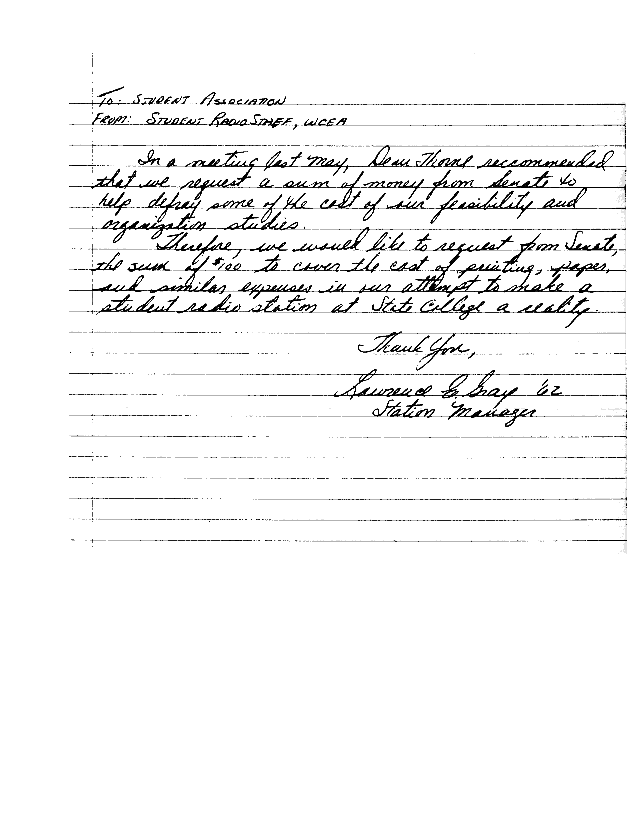 To: Student Association
From: Student Radio Staff, WCEA
In a meeting last May, Dean Thorne reccommended
that we request a sum of money from Senate to
help defray some of the cost of our feasibility and
organization studies.
Therefore, we would like to request from Senate,
the sum of $100 to cover the cost of printing, paper,
and similar expenses in our attempt to make a
student radio station at State College a reality.
Thank You,
Lawrence G. Gray '62
Station Manager